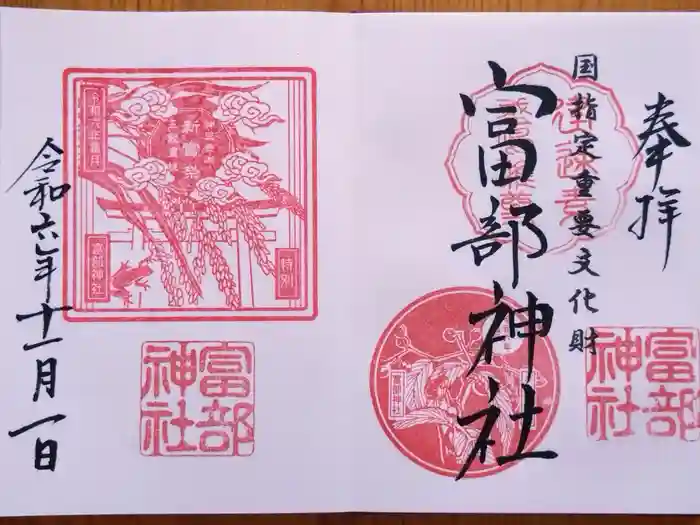 奉拝
国指定重要文化財
富部神社
富部
神社
富部神社
令和六年霜月
新嘗祭
特別
富部神社
富部
神社
令和六年十一月一日